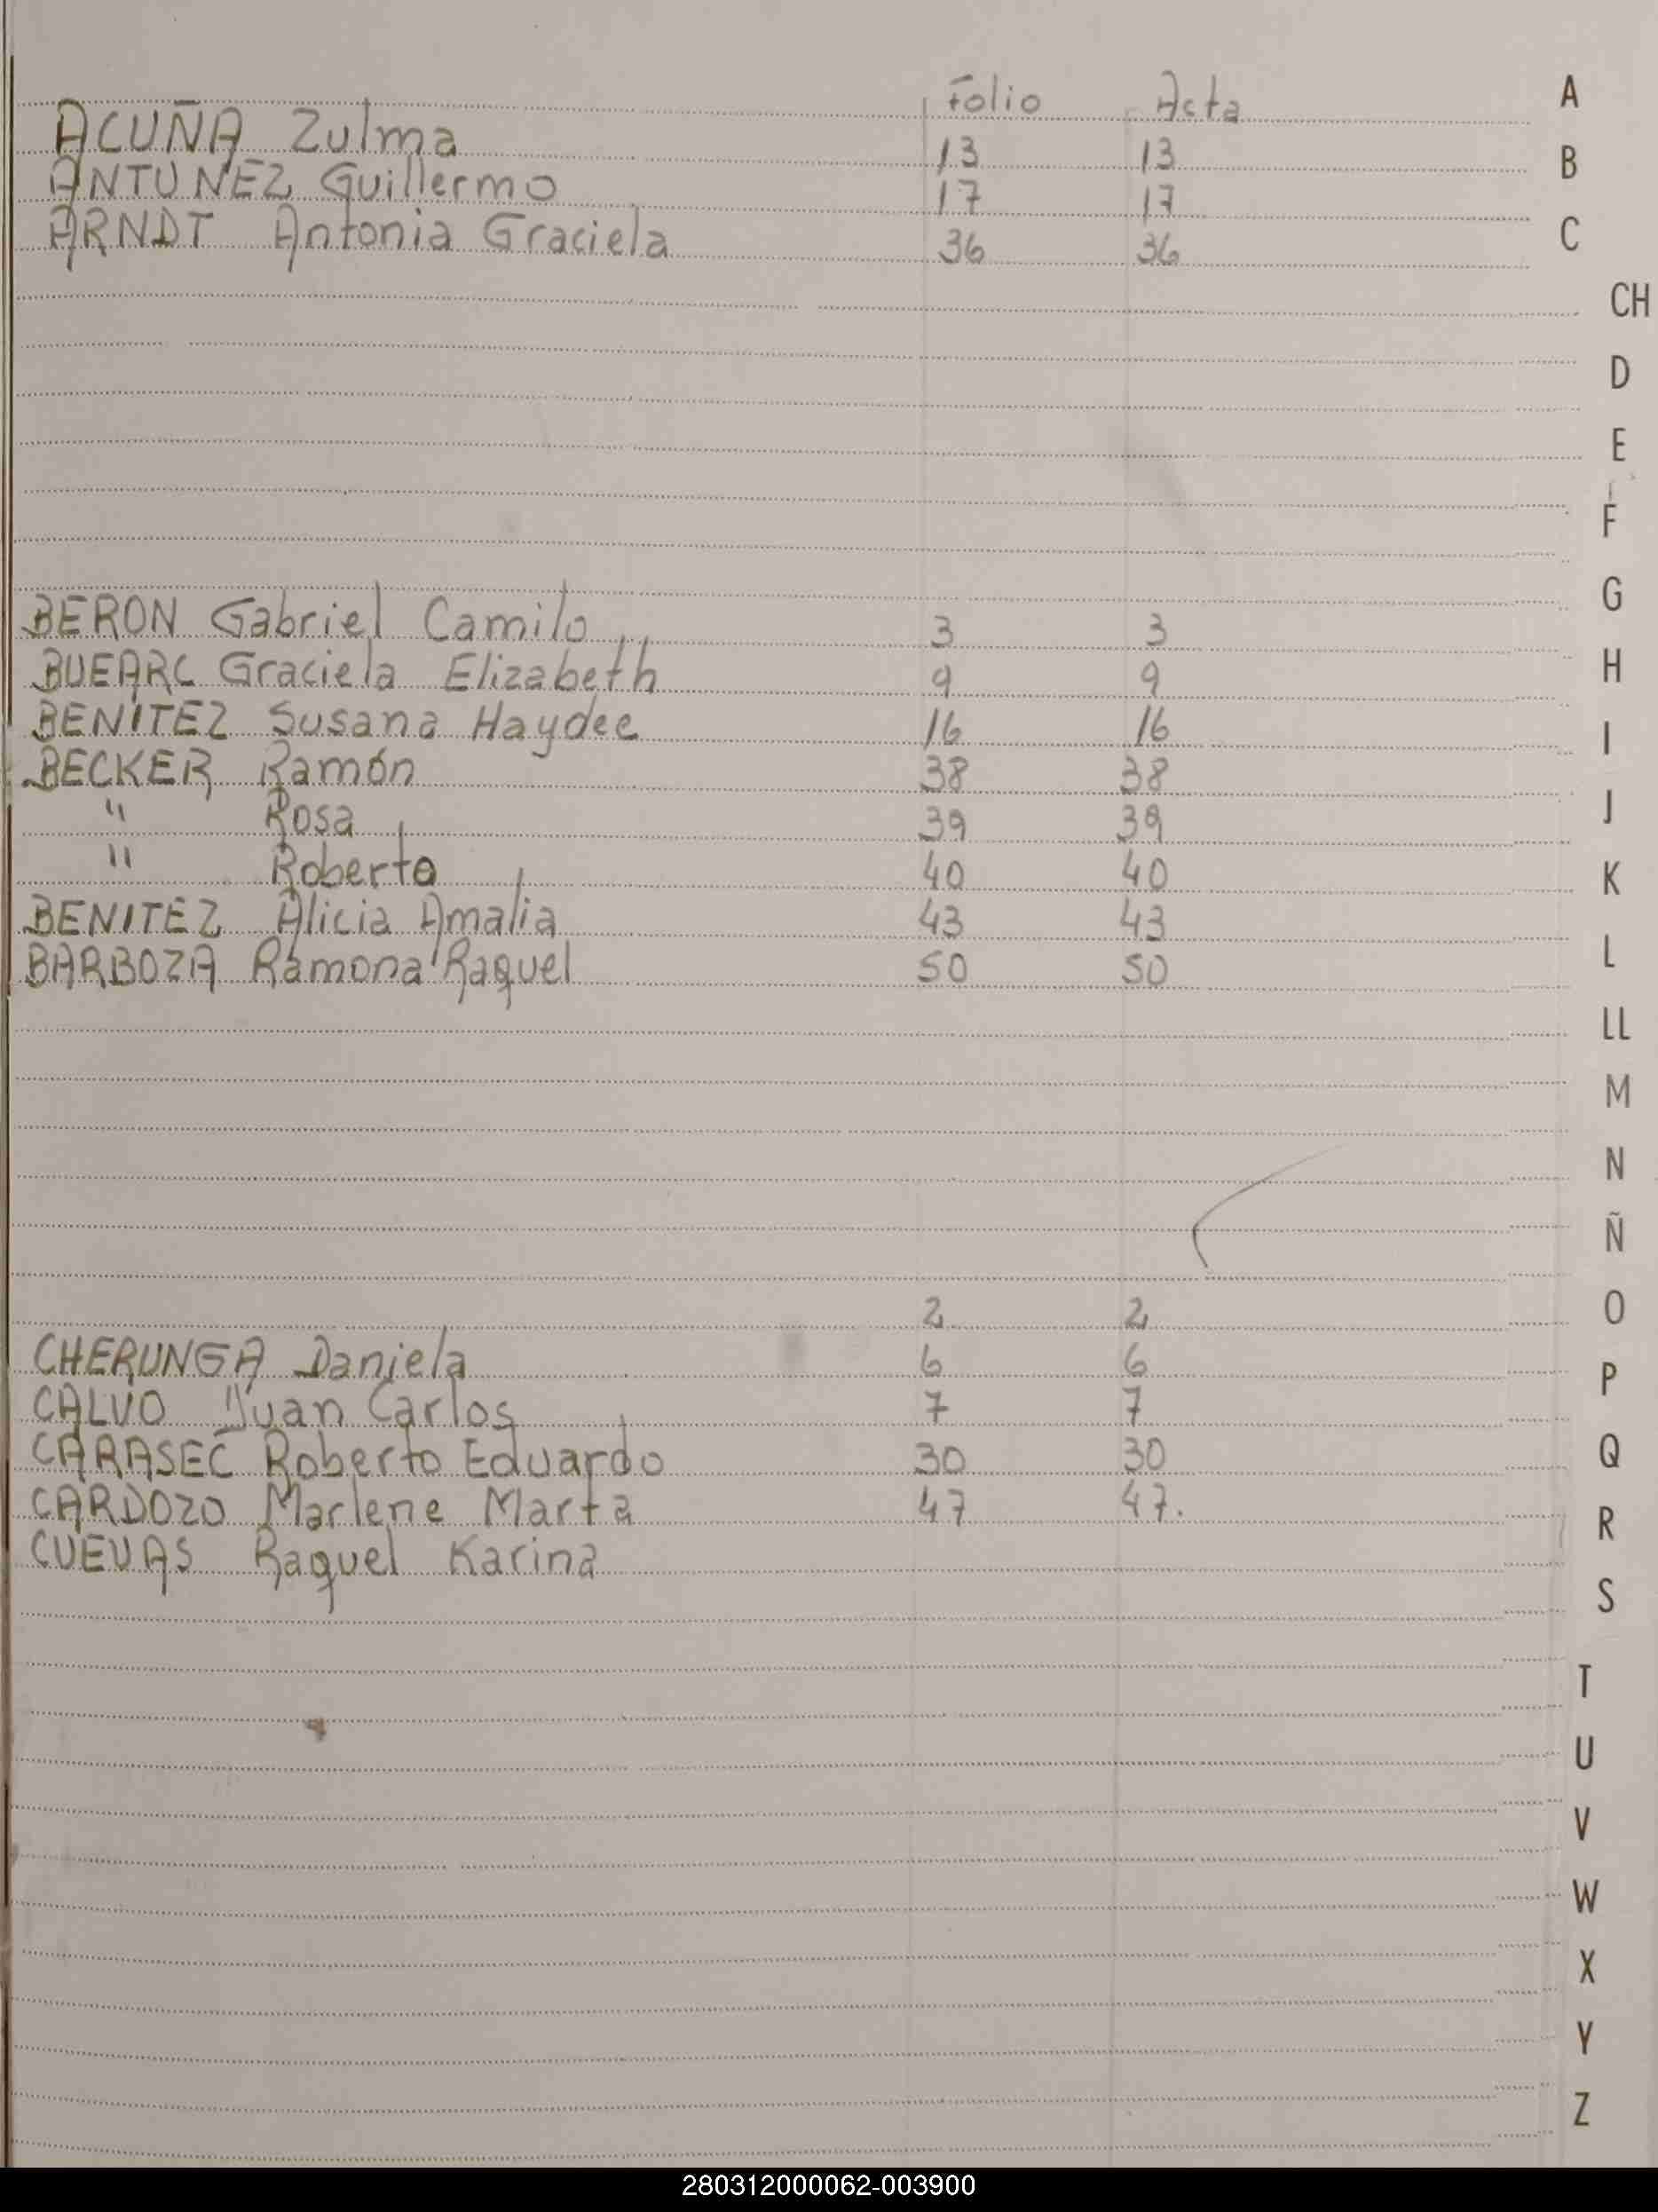 Folio Acta
ACUÑA Zulma 13 13
ANTUNEZ Guillermo 17 17
ARNDT Antonia Graciela 36 36
BERON Gabriel Camilo 3 3
BUEARC Graciela Elizabeth 9 9
BENÍTEZ Susana Haydee 16 16
BECKER Ramón 38 38
" Rosa 39 39
" Roberto 40 40
BENITEZ Alicia Amalia 43 43
BARBOZA Ramona Raquel 50 50
2 2
CHERUNGA Daniela 6 6
CALVO Juan Carlos 7 7
CARASEC Roberto Eduardo 30 30
CARDOZO Marlene Marta 47 47.
CUEVAS Raquel Karina
A
B
C
CH
D
E
F
G
H
I
J
K
L
LL
M
N
Ñ
O
P
Q
R
S
T
U
V
W
X
Y
Z
280312000062-003900